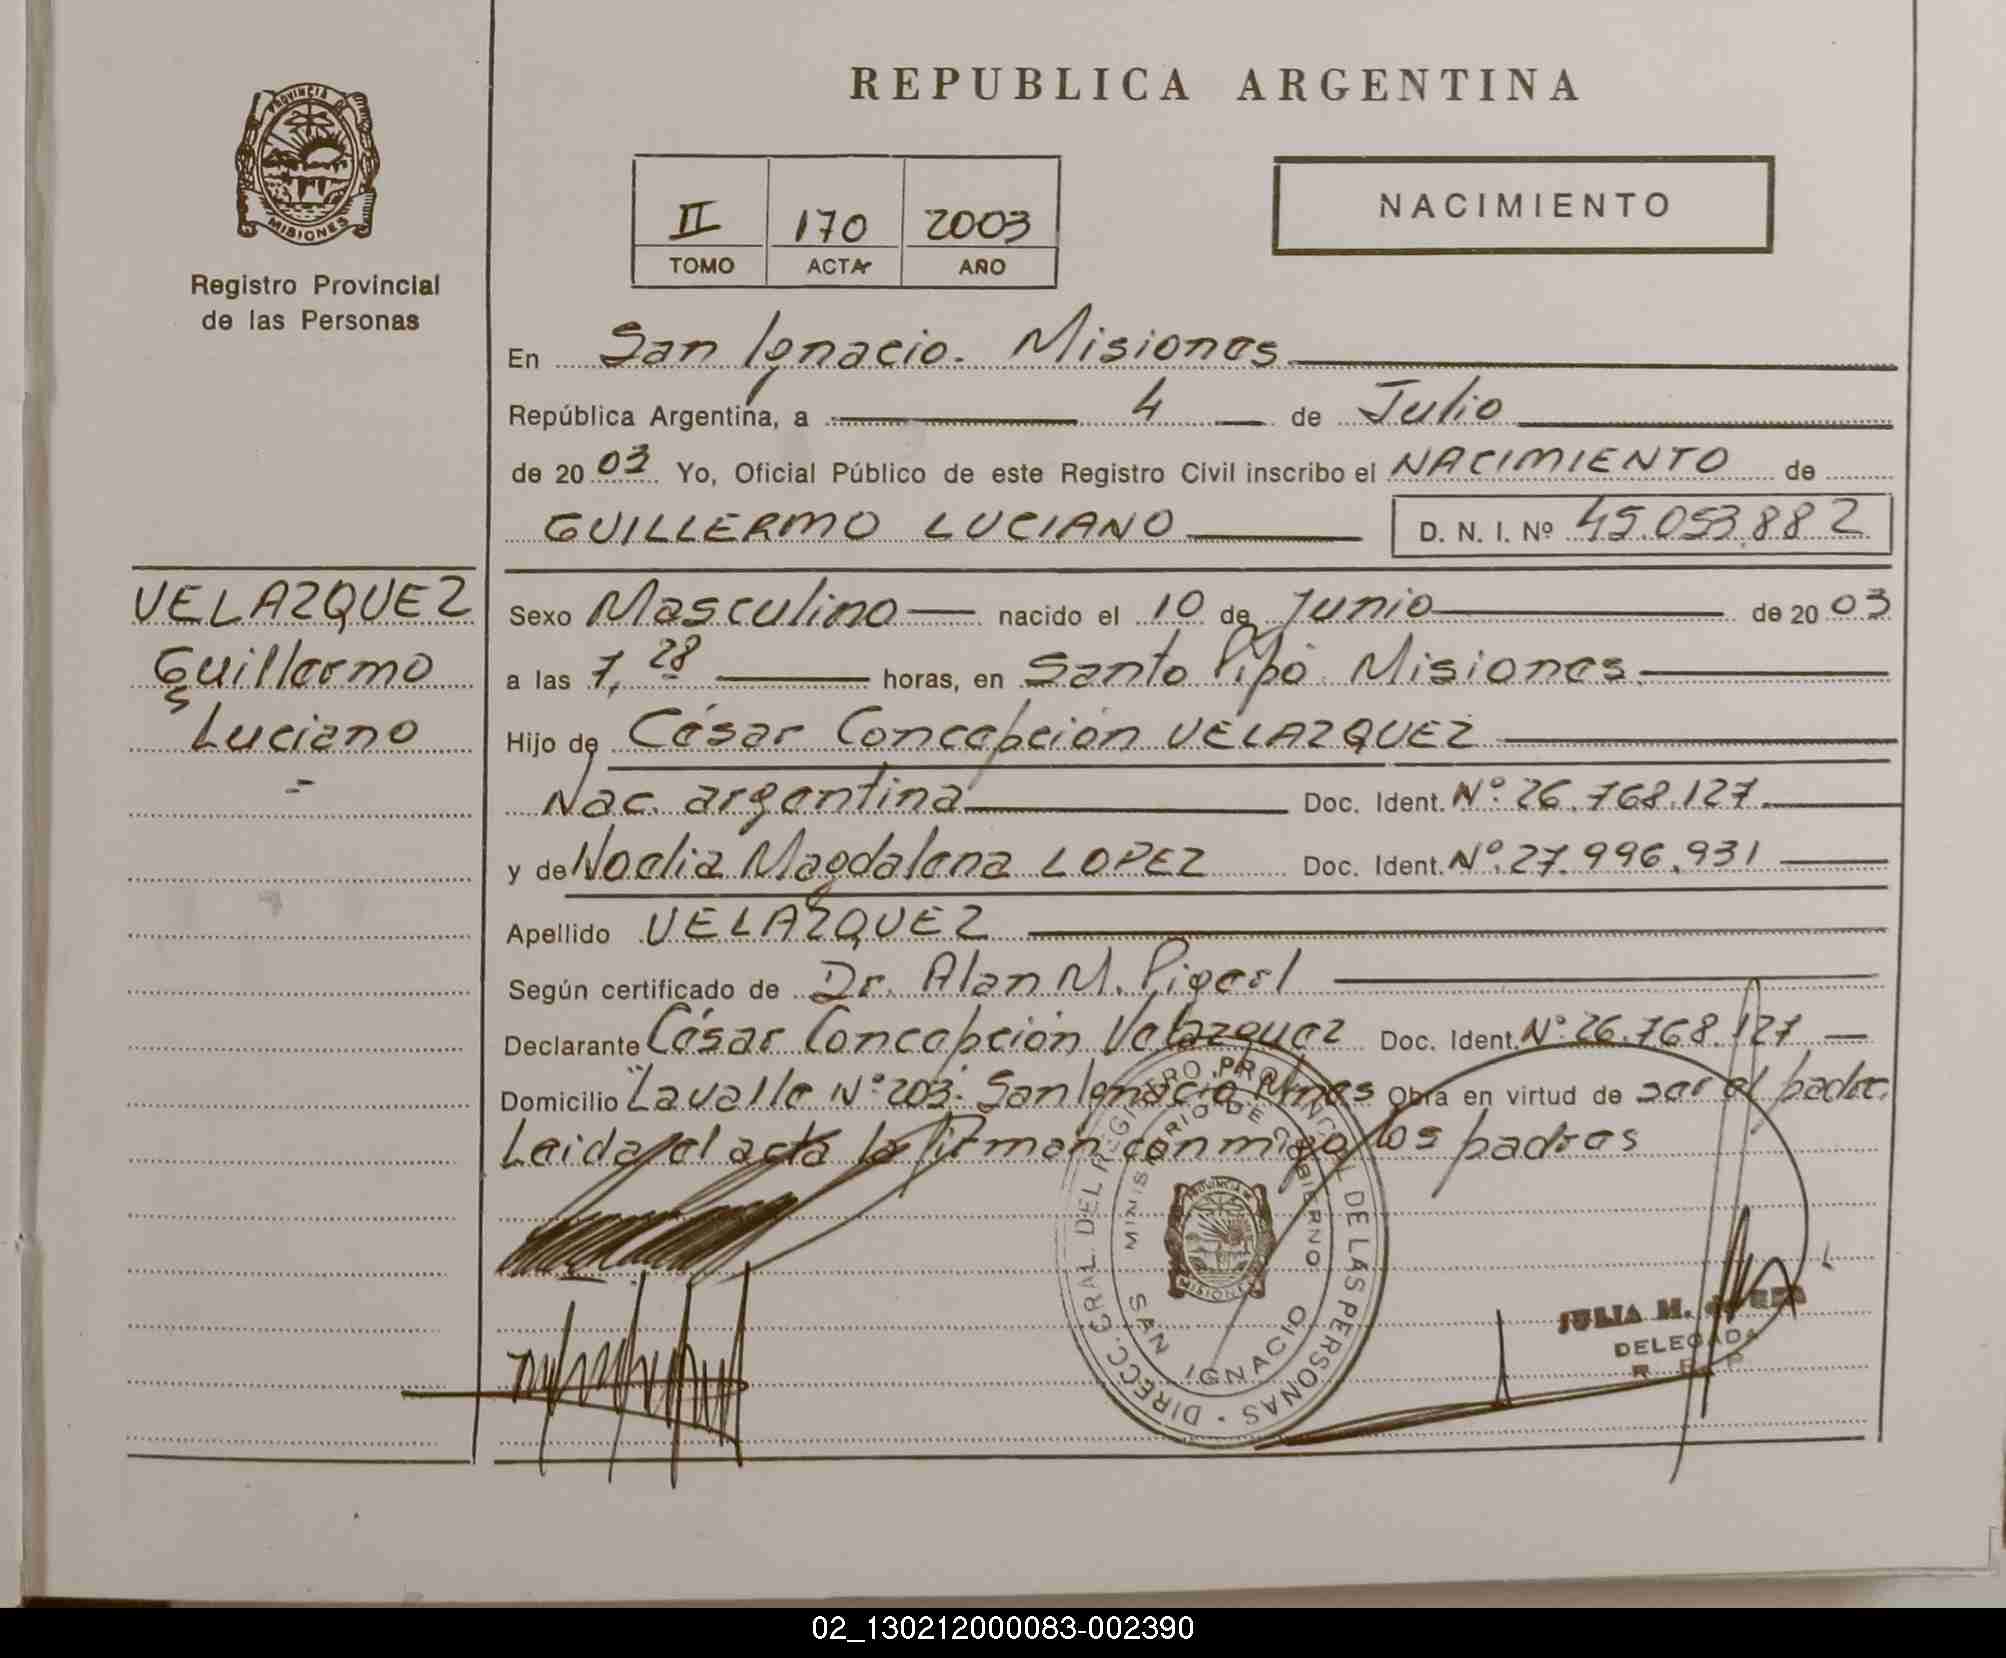 REPUBLICA ARGENTINA
PROVINCIA DE
MISIONES
Registro Provincial
de las Personas
II 170 2003
TOMO ACTA AÑO
NACIMIENTO
En San Ignacio. Misiones
República Argentina, a 4 de Julio
de 2003 Yo, Oficial Público de este Registro Civil inscribo el NACIMIENTO de
GUILLERMO LUCIANO D. N. I. Nº 45.053.882
VELAZQUEZ
Guillermo
Luciano
Sexo Masculino nacido el 10 de Junio de 2003
a las 7,28 horas, en Santo Pipó. Misiones.
Hijo de César Concepción VELAZQUEZ
Nac. argentina Doc. Ident. Nº. 26.768.127.
y de Noelia Magdalena LOPEZ Doc. Ident. Nº. 27.996.931
Apellido VELAZQUEZ
Según certificado de Dr. Alan M.
Declarante César Concepción Velazquez Doc. Ident. Nº. 26.768.127
Domicilio Lavalle Nº 203. San Ignacio Mnes Obra en virtud de ser el padre.
Leida el acta la firman conmigo los padres
DIRECC. GRAL. DEL REGISTRO PROVINCIAL DE LAS PERSONAS
MINISTERIO DE GOBIERNO
PROVINCIA DE
MISIONES
SAN IGNACIO
JULIA M. de
DELEGADA
R. P.
02_130212000083-002390